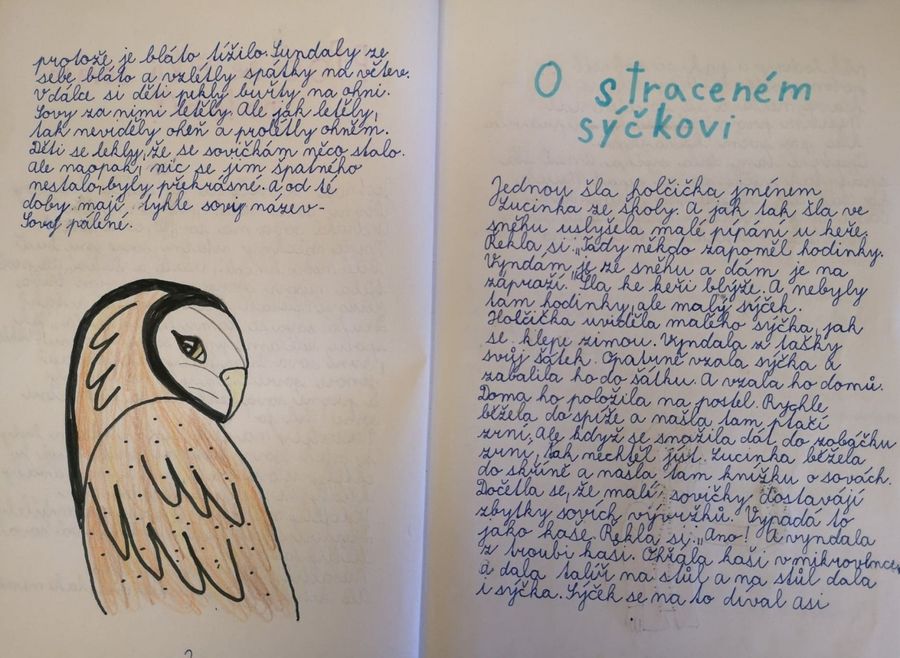 protože je bláto tížilo. Sundaly ze
sebe bláto a vzlétly spátky na větev.
V dálce si děti pekly buřty na ohni.
Sovy za nimi letěly. Ale jak letěly,
tak neviděly oheň a prolétly ohněm.
Děti se lekly, že se sovičkám něco stalo.
Ale naopak, nic se jim špatného
nestalo, byly překrásné. A od té
doby mají tyhle sovy název-
Sovy pálené.
O straceném
sýčkovi
Jednou šla holčička jménem
Lucinka ze školy. A jak tak šla ve
sněhu uslyšela malé pípání u keře.
Řekla si: „Tady někdo zapoměl hodinky.
Vyndám je ze sněhu a dám je na
zápraží." Šla ke keři blýže. A nebyly
tam hodinky, ale malý sýček.
Holčička uviděla malého sýčka, jak
se klepe zimou. Vyndala z tašky
svůj šátek. Opatrně vzala sýčka a
zabalila ho do šátku. A vzala ho domů.
Doma ho položila na postel. Rychle
běžela do spíže a našla tam ptačí
zrní. Ale když se snažila dát do zobáčku
zrní, tak nechtěl jíst. Lucinka běžela
do skříně a našla tam knížku o sovách.
Dočetla se, že malí sovičky dostavájí
zbytky sovích vývržků. Vypadá to
jako kaše. Řekla si: „Ano! A vyndala
z troubi kaši. Ohřála kaši v mikrovlnce
a dala talíř na stůl a na stůl dala
i sýčka. Sýček se na to díval asi